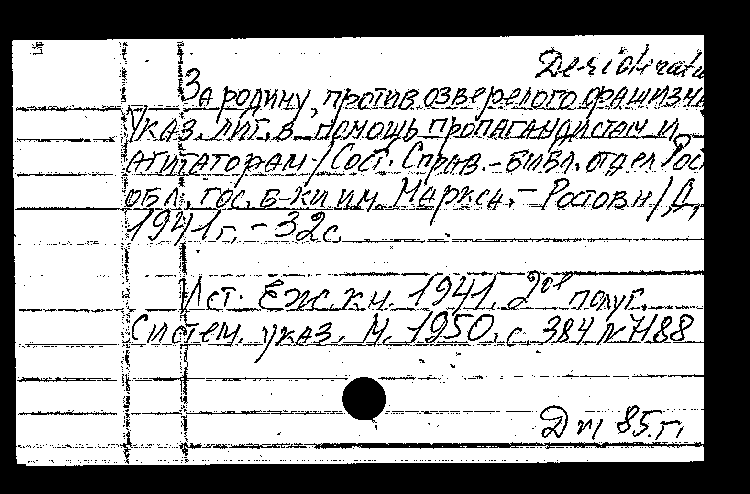 Desiderata
За родину, против озверелого фашизма
Указ. лит. в помощь пропагандистам и
агитаторам / Сост. Справ.-библ. отдел Рост
обл. гос. б-ки им. Маркса. - Ростов н/Д,
1941г. - 32с.
Ист. Еж. кн. 1941. 2ое полуг.
Систем. указ. М. 1950. с. 384 № 7188
85.г.